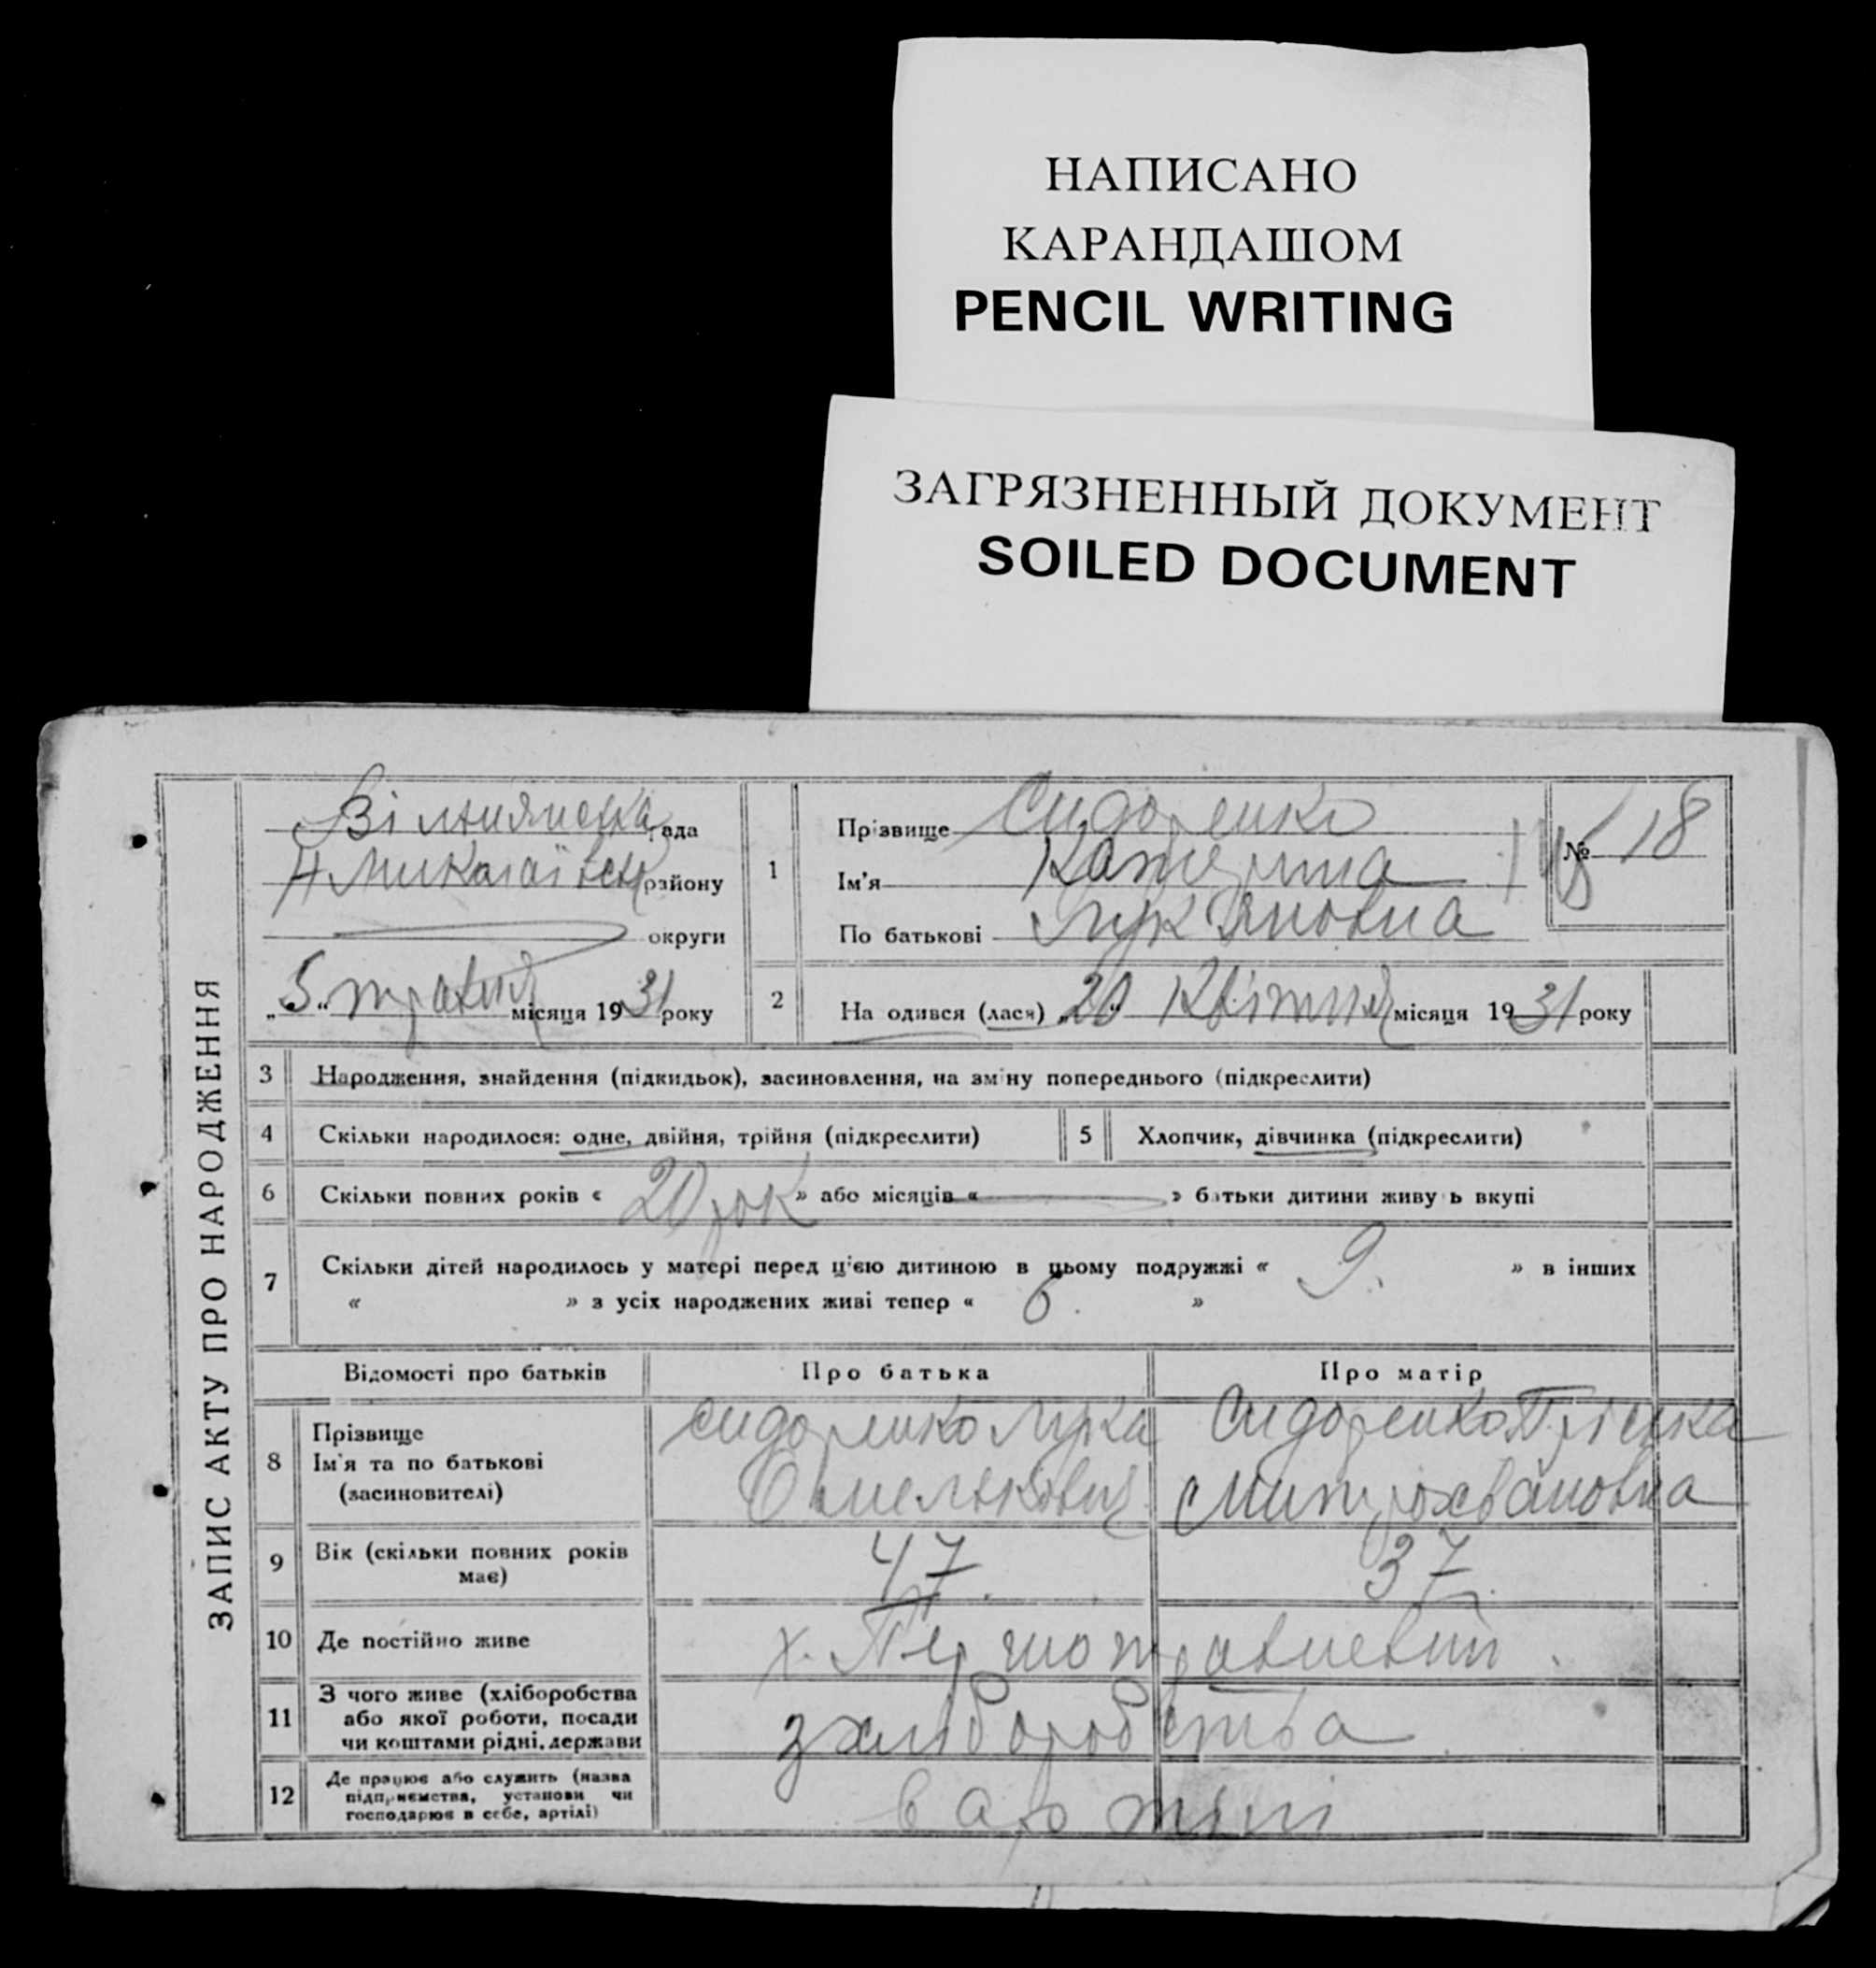 НАПИСАНО
КАРАНДАШОМ
PENCIL WRITING
ЗАГРЯЗНЕННЫЙ ДОКУМЕНТ
SOILED DOCUMENT
ЗАПИС АКТУ ПРО НАРОДЖЕННЯ
Вільнянська рада
Н Миколаївськ району
округи
„5“ травня місяця 1931 року
1
Прізвище Сидоренко
Ім'я Катерина
По батькові Лук'яновна
№ 18
2
На одився (лася) „20“ Квітня місяця 1931 року
3 Народження, знайдення (підкидьок), засиновлення, на зміну попереднього (підкреслити)
4 Скільки народилося: одне, двійня, трійня (підкреслити)
5 Хлопчик, дівчинка (підкреслити)
6 Скільки повних років « 20 рок » або місяців « » батьки дитини живуть вкупі
7 Скільки дітей народилось у матері перед ц'єю дитиною в цьому подружжі « 9. » в інших
« » з усіх народжених живі тепер « 6. »
Відомості про батьків Про батька Про матір
8 Прізвище
Ім'я та по батькові
(засиновителі)
Сидоренко Лука
Омелькович
Сидоренко Пріська
Митрохвановна
9 Вік (скільки повних років
має)
47. 37.
10 Де постійно живе х. Першотравневий.
11 З чого живе (хліборобства
або якої роботи, посади
чи коштами рідні, держави
з хліборобства
12 Де працює або служить (назва
підприємства, установи чи
господарює в себе, артілі)
в артілі